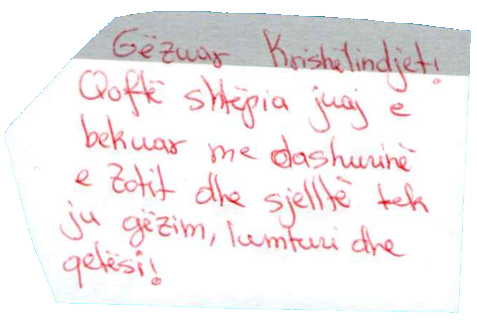 Gëzuar Krishtlindjet!
Qoftë shtëpia juaj e
bekuar me dashurinë
e Zotit dhe sjelltë tek
ju gëzim, lumturi dhe
qetësi!